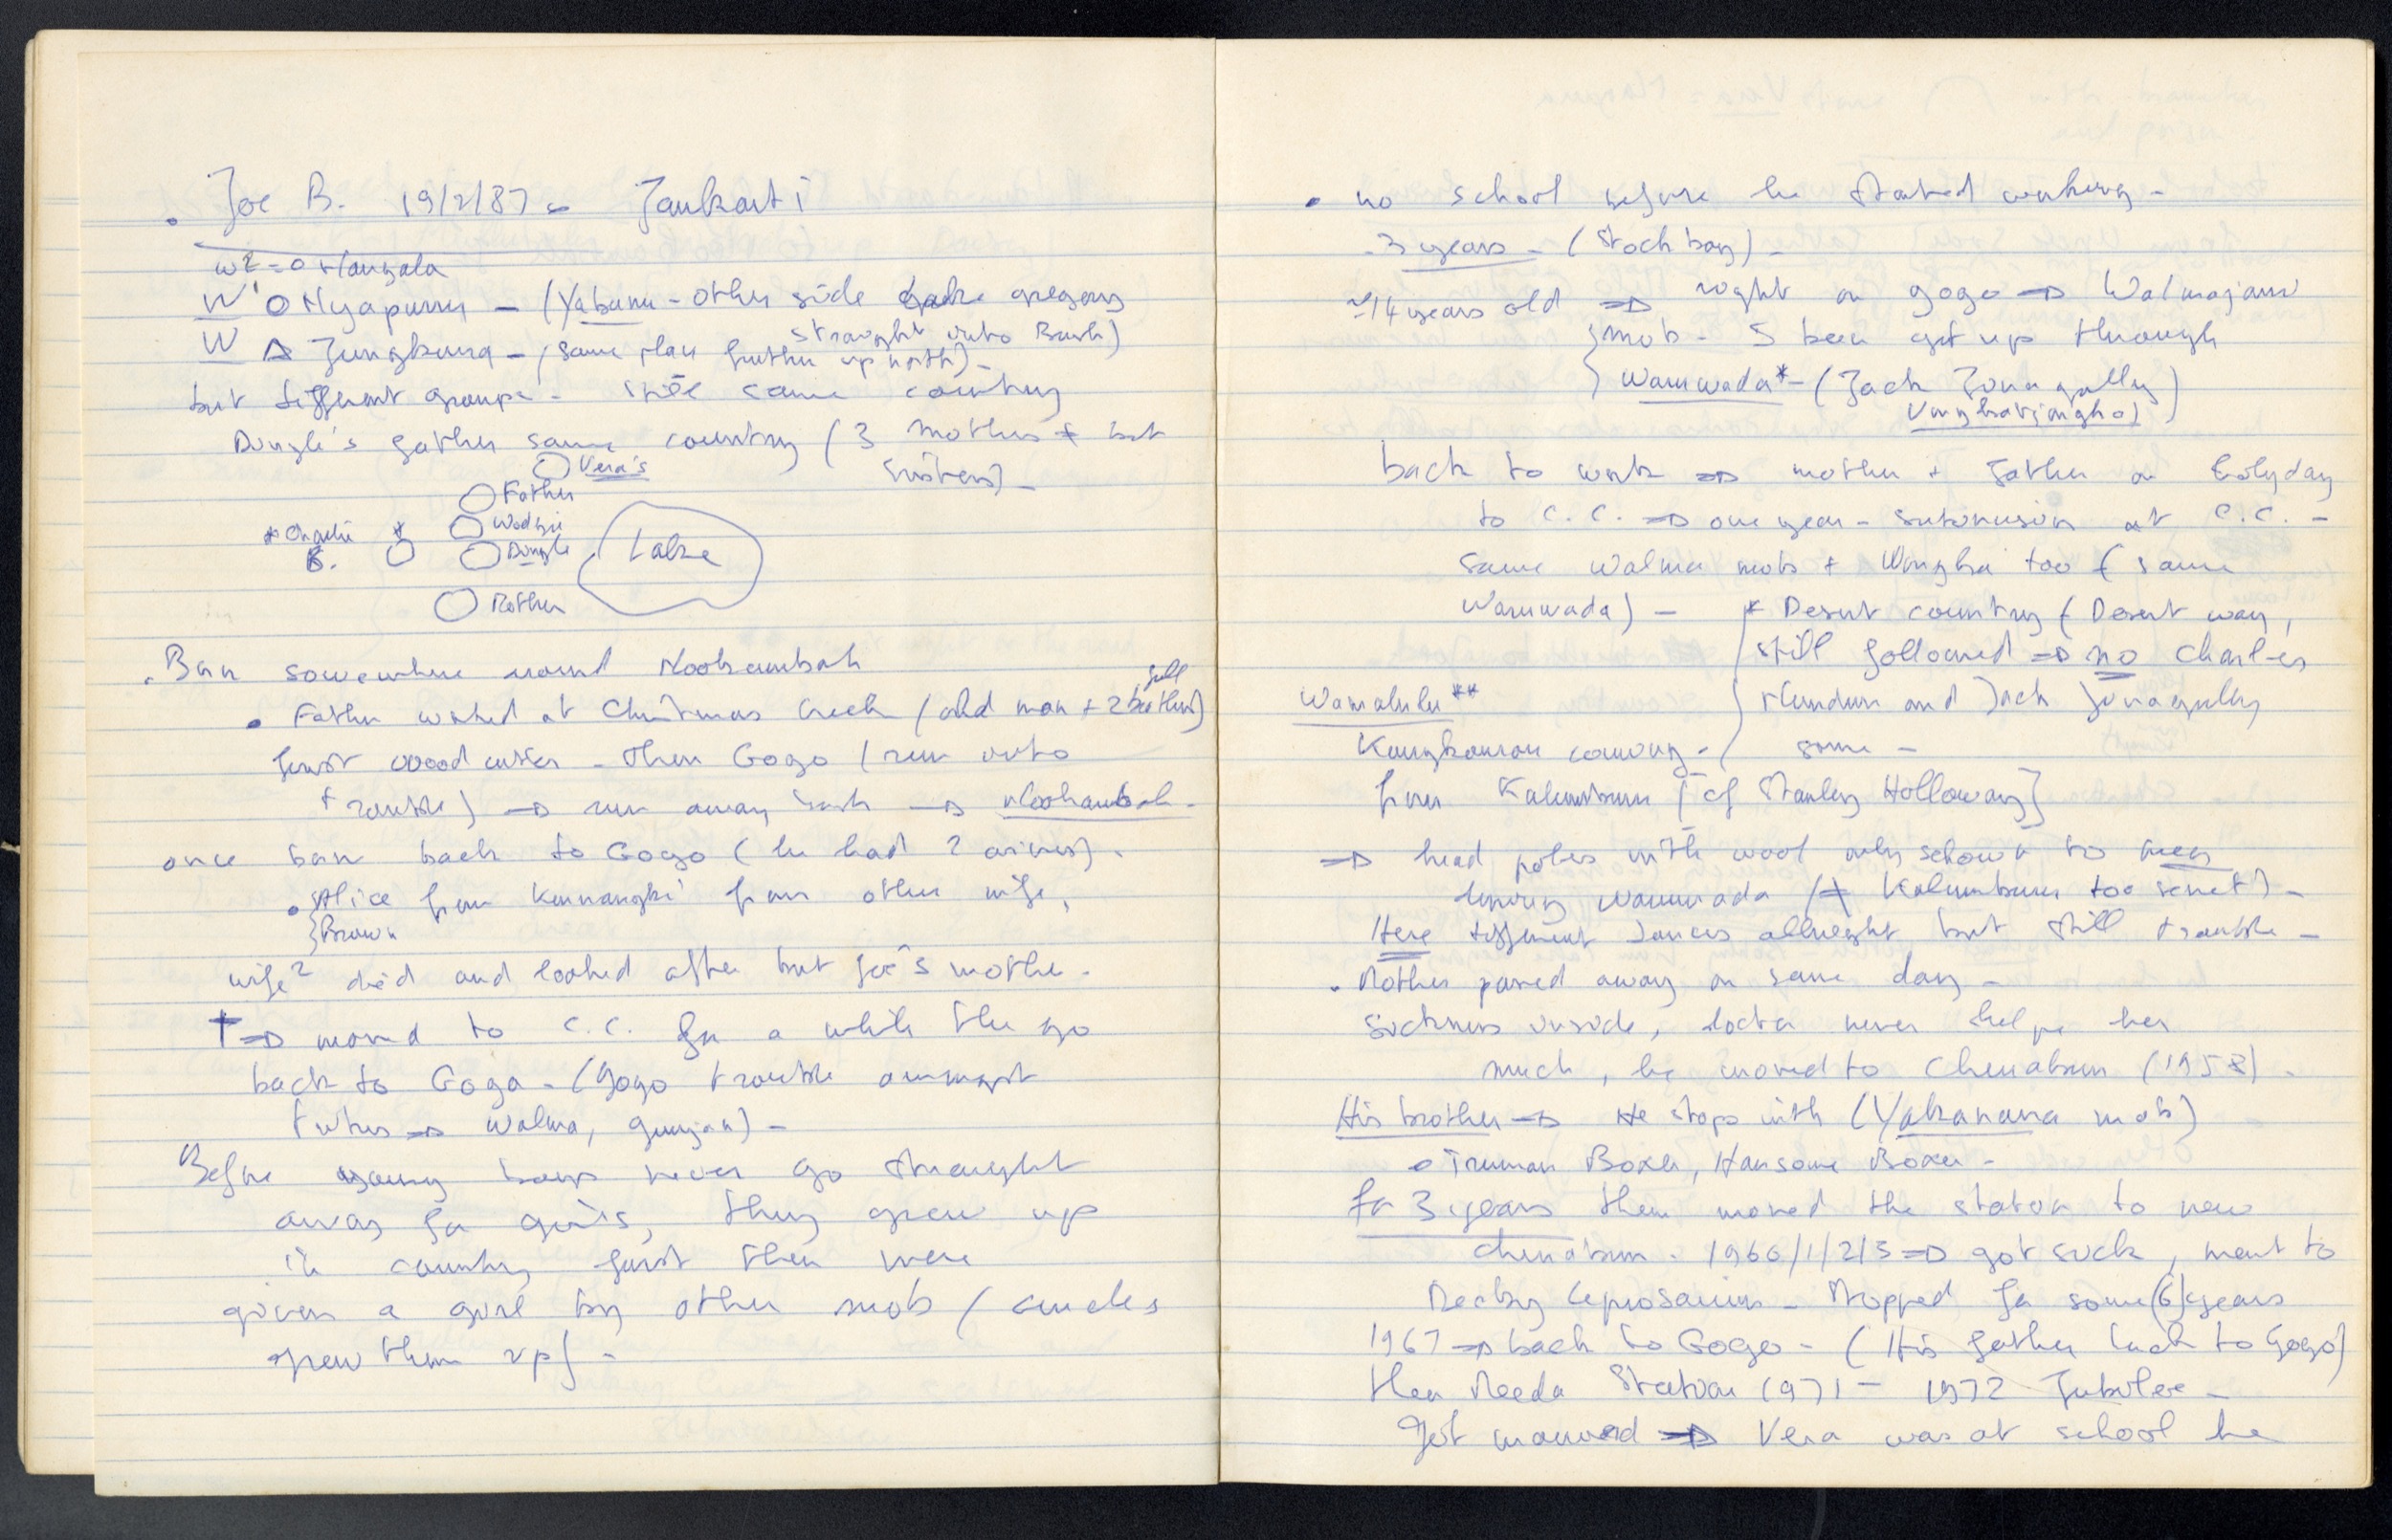 . Joe B. 19/2/87 - Jankarti
W² = O Nangala
W¹ O Nyapurru - (Yabanu - other side Lake Gregory
straight into Bush)
W Δ Jungkurra - (same place further up north) -
but different groups - still same country
Dingle's father same country (3 mothers + but
sisters) -
O Vera's
O Father
* Charlie B. * O
O Wadjie
O Dingle
Lake
O Mother
. Born somewhere around Nookambah
full
. Father worked at Christmas Creek (old man + 2 brothers)
first wood cutter - then Gogo (run into
trouble) ⇒ run away bush ⇒ Nookambah -
once born back to Gogo (he had 2 wives) -
. Alice from Kurnangki from other wife,
Brown
wife² died and looked after but Joe's mother -
† ⇒ moved to C.C. for a while then go
back to Gogo - (Gogo trouble amongst
tribes ⇒ Walma, Gunjan) -
Before young boys never go straight
away for girls, they grew up
in country first then were
given a girl by other mob (uncles
grew them up) -
. no school before he started working -
- 3 years - (stockboy) -
~14 years old ⇒ right on gogo ⇒ Walmajarri
mob - I been get up through
Wanuwada* - (Jack Jinagully
Vungkatjungka)
back to work ⇒ mother + father on holyday
to C.C. ⇒ one year - submission at C.C. -
same Walma mob + Wongka too (same
Wanuwada) -
* Desert country (Desert way,
still followed ⇒ no Charles
Wanalulu**
Nundun and Jack Jinagully
Kungkanan coming -
some -
from Kalumburu [cf Stanley Holloway]
⇒ head poles with wool only schown to men
during Wanuwada (≠ Kalumburu too secret) -
Here different dances allreight but still trouble -
. Mother passed away on same day -
Sickness inside, doctor never help her
much, he moved to Cherrabun (1958) -
His brother ⇒ He stops with (Yakanarra mob)
. Truman Boxer, Hansome Boxer -
for 3 years then moved the station to new
Cherrabun - 1960/1/2/3 ⇒ got sick, went to
Derby Leprosarium - stopped for some (6) years
1967 ⇒ back to Gogo - (His father back to Gogo)
then Meeda Station 1971 - 1972 Jubilee -
Got married ⇒ Vera was at school he